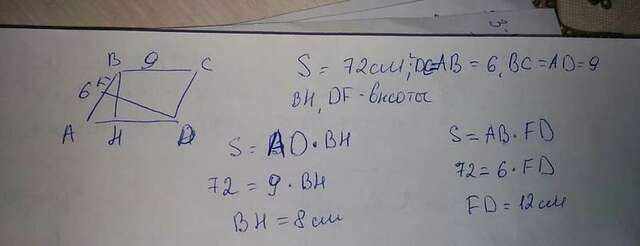 B 9 C
6 F
A H D
S = 72см²; DC=AB = 6, BC = AD = 9
BH, DF - высоты
S = AD · BH
72 = 9 · BH
BH = 8 см
S = AB · FD
72 = 6 · FD
FD = 12 см